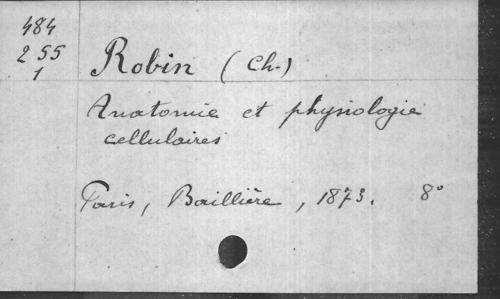 484
255
1
Robin (Ch.)
Anatomie et physiologie
cellulaires
Paris, Baillière, 1873. 8°